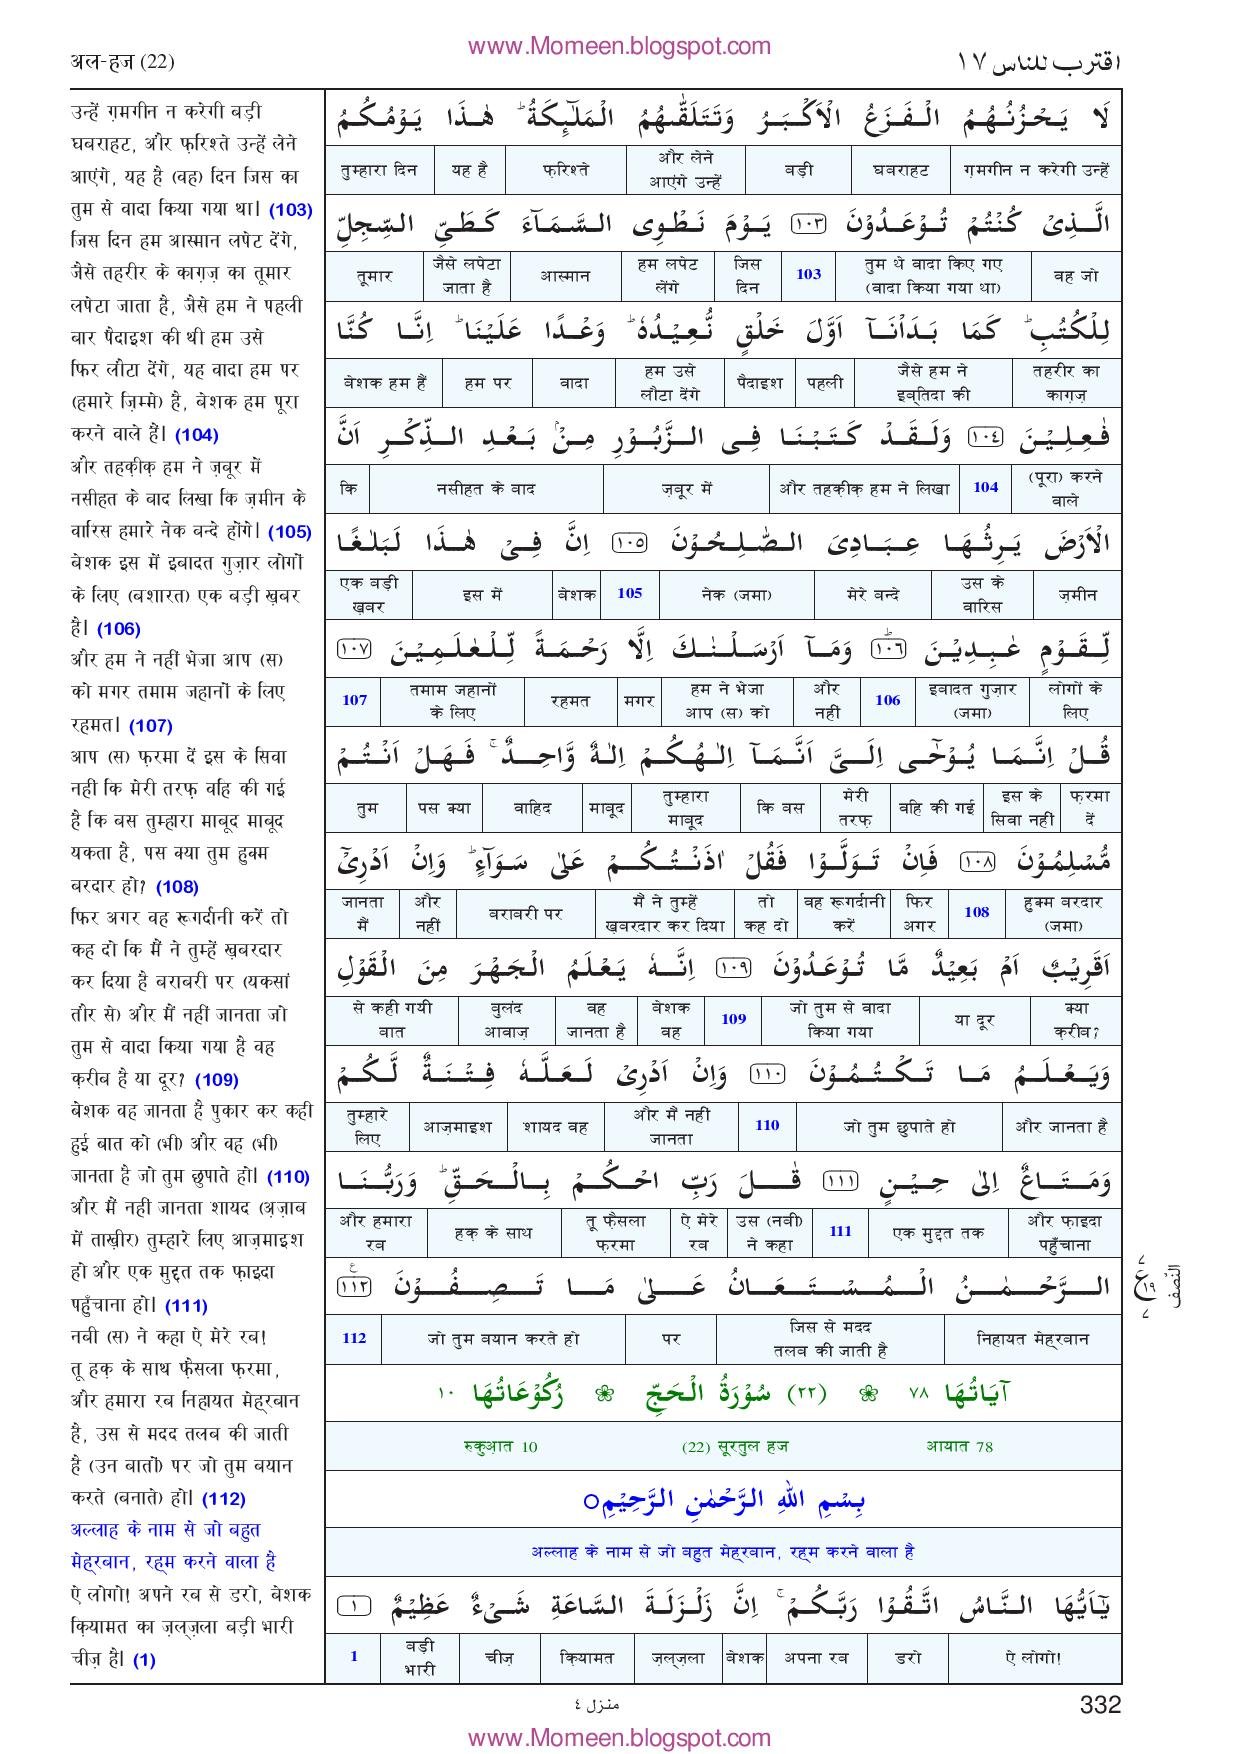 www.Momeen.blogspot.com
अल-हज (22)
اقترب للناس ١٧
उन्हें ग़मगीन न करेगी बड़ी
घबराहट, और फ़रिश्ते उन्हें लेने
आएंगे, यह है (वह) दिन जिस का
तुम से वादा किया गया था। (103)
जिस दिन हम आस्मान लपेट देंगे,
जैसे तहरीर के काग़ज़ का तूमार
लपेटा जाता है, जैसे हम ने पहली
बार पैदाइश की थी हम उसे
फिर लौटा देंगे, यह वादा हम पर
(हमारे ज़िम्मे) है, बेशक हम पूरा
करने वाले हैं। (104)
और तहक़ीक़ हम ने ज़बूर में
नसीहत के बाद लिखा कि ज़मीन के
वारिस हमारे नेक बन्दे होंगे। (105)
बेशक इस में इबादत गुज़ार लोगों
के लिए (बशारत) एक बड़ी ख़बर
है। (106)
और हम ने नहीं भेजा आप (स)
को मगर तमाम जहानों के लिए
रहमत। (107)
आप (स) फ़रमा दें इस के सिवा
नहीं कि मेरी तरफ़ वहि की गई
है कि बस तुम्हारा माबूद माबूद
यकता है, पस क्या तुम हुक्म
बरदार हो? (108)
फिर अगर वह रूगर्दानी करें तो
कह दो कि मैं ने तुम्हें ख़बरदार
कर दिया है बराबरी पर (यकसां
तौर से) और मैं नहीं जानता जो
तुम से वादा किया गया है वह
क़रीब है या दूर? (109)
बेशक वह जानता है पुकार कर कही
हुई बात को (भी) और वह (भी)
जानता है जो तुम छुपाते हो। (110)
और मैं नहीं जानता शायद (अ़ज़ाब
में ताख़ीर) तुम्हारे लिए आज़माइश
हो और एक मुद्दत तक फ़ाइदा
पहुँचाना हो। (111)
नबी (स) ने कहा ऐ मेरे रब!
तू हक़ के साथ फ़ैसला फ़रमा,
और हमारा रब निहायत मेह्रबान
है, उस से मदद तलब की जाती
है (उन बातों) पर जो तुम बयान
करते (बनाते) हो। (112)
अल्लाह के नाम से जो बहुत
मेह्रबान, रह्म करने वाला है
ऐ लोगो! अपने रब से डरो, बेशक
क़ियामत का ज़ल्ज़ला बड़ी भारी
चीज़ है। (1)
لَا يَحْزُنُهُمُ الْفَزَعُ الْاَكْبَرُ وَتَتَلَقّٰىهُمُ الْمَلٰٓئِكَةُ ؕ هٰذَا يَوْمُكُمُ
ग़मगीन न करेगी उन्हें घबराहट बड़ी और लेने आएंगे उन्हें फ़रिश्ते यह है तुम्हारा दिन
الَّذِىْ كُنْتُمْ تُوْعَدُوْنَ ١٠٣ يَوْمَ نَطْوِى السَّمَآءَ كَطَىِّ السِّجِلِّ
वह जो तुम थे वादा किए गए (वादा किया गया था) 103 जिस दिन हम लपेट लेंगे आस्मान जैसे लपेटा जाता है तूमार
لِلْكُتُبِ ؕ كَمَا بَدَاْنَآ اَوَّلَ خَلْقٍ نُّعِيْدُهٗ ؕ وَعْدًا عَلَيْنَا ؕ اِنَّا كُنَّا
तहरीर का काग़ज़ जैसे हम ने इब्तिदा की पहली पैदाइश हम उसे लौटा देंगे वादा हम पर बेशक हम हैं
فٰعِلِيْنَ ١٠٤ وَلَقَدْ كَتَبْنَا فِى الزَّبُوْرِ مِنْۢ بَعْدِ الذِّكْرِ اَنَّ
(पूरा) करने वाले 104 और तहक़ीक़ हम ने लिखा ज़बूर में नसीहत के बाद कि
الْاَرْضَ يَرِثُهَا عِبَادِىَ الصّٰلِحُوْنَ ١٠٥ اِنَّ فِىْ هٰذَا لَبَلٰغًا
ज़मीन उस के वारिस मेरे बन्दे नेक (जमा) 105 बेशक इस में एक बड़ी ख़बर
لِّقَوْمٍ عٰبِدِيْنَ ؕ ١٠٦ وَمَآ اَرْسَلْنٰكَ اِلَّا رَحْمَةً لِّلْعٰلَمِيْنَ ١٠٧
लोगों के लिए इबादत गुज़ार (जमा) 106 और नहीं हम ने भेजा आप (स) को मगर रहमत तमाम जहानों के लिए 107
قُلْ اِنَّمَا يُوْحٰٓى اِلَىَّ اَنَّمَآ اِلٰهُكُمْ اِلٰهٌ وَّاحِدٌ ۚ فَهَلْ اَنْتُمْ
फ़रमा दें इस के सिवा नहीं वहि की गई मेरी तरफ़ कि बस तुम्हारा माबूद माबूद वाहिद पस क्या तुम
مُّسْلِمُوْنَ ١٠٨ فَاِنْ تَوَلَّوْا فَقُلْ اٰذَنْتُكُمْ عَلٰى سَوَآءٍ ؕ وَاِنْ اَدْرِىْٓ
हुक्म बरदार (जमा) 108 फिर अगर वह रूगर्दानी करें तो कह दो मैं ने तुम्हें ख़बरदार कर दिया बराबरी पर और नहीं जानता मैं
اَقَرِيْبٌ اَمْ بَعِيْدٌ مَّا تُوْعَدُوْنَ ١٠٩ اِنَّهٗ يَعْلَمُ الْجَهْرَ مِنَ الْقَوْلِ
क्या क़रीब? या दूर जो तुम से वादा किया गया 109 बेशक वह वह जानता है बुलंद आवाज़ से कही गयी बात
وَيَعْلَمُ مَا تَكْتُمُوْنَ ١١٠ وَاِنْ اَدْرِىْ لَعَلَّهٗ فِتْنَةٌ لَّكُمْ
और जानता है जो तुम छुपाते हो 110 और मैं नहीं जानता शायद वह आज़माइश तुम्हारे लिए
وَمَتَاعٌ اِلٰى حِيْنٍ ١١١ قٰلَ رَبِّ احْكُمْ بِالْحَقِّ ؕ وَرَبُّنَا
और फ़ाइदा पहुँचाना एक मुद्दत तक 111 उस (नबी) ने कहा ऐ मेरे रब तू फ़ैसला फ़रमा हक़ के साथ और हमारा रब
الرَّحْمٰنُ الْمُسْتَعَانُ عَلٰى مَا تَصِفُوْنَ ع ١١٢
निहायत मेह्रबान जिस से मदद तलब की जाती है पर जो तुम बयान करते हो 112
ع ١٩ ٧ ٧ النصف
آيَاتُهَا ٧٨ ❀ (٢٢) سُوْرَةُ الْحَجِّ ❀ رُكُوْعَاتُهَا ١٠
आयात 78 (22) सूरतुल हज रुकुआ़त 10
بِسْمِ اللهِ الرَّحْمٰنِ الرَّحِيْمِ○
अल्लाह के नाम से जो बहुत मेह्रबान, रह्म करने वाला है
يٰٓاَيُّهَا النَّاسُ اتَّقُوْا رَبَّكُمْ ۚ اِنَّ زَلْزَلَةَ السَّاعَةِ شَىْءٌ عَظِيْمٌ ١
ऐ लोगो! डरो अपना रब बेशक ज़ल्ज़ला क़ियामत चीज़ बड़ी भारी 1
منزل ٤
332
www.Momeen.blogspot.com